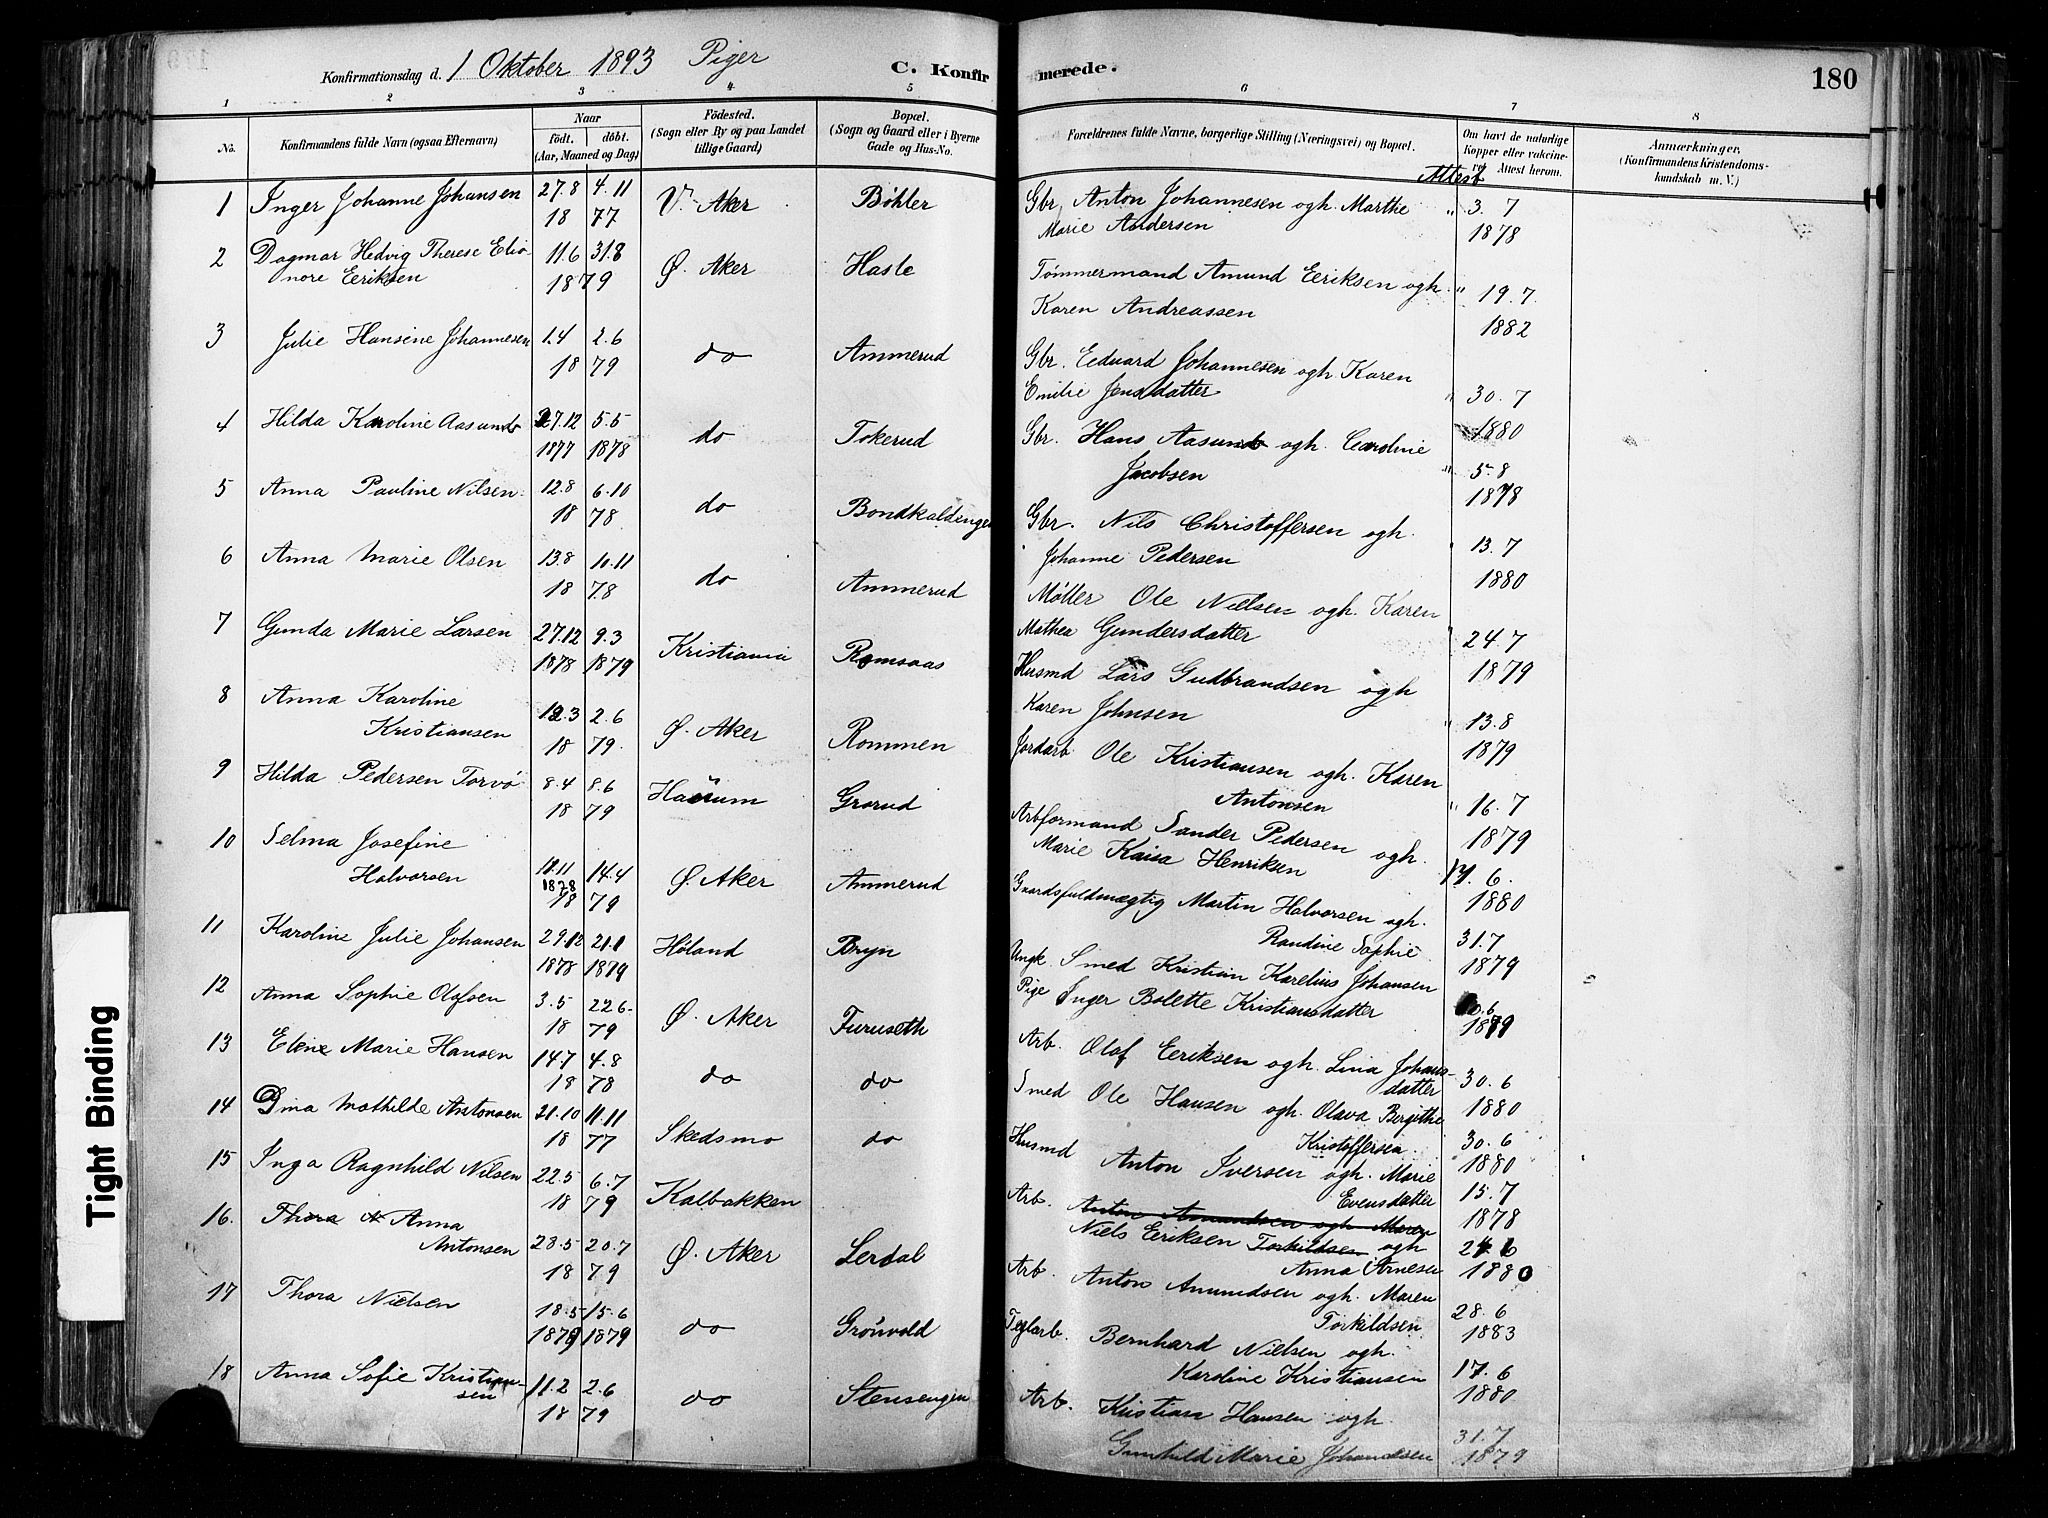 Konfirmationsdag d. 1 Oktober 1893 Piger
C. Konfirmerede.
180
1 2 3 4 5 6 7 8
No.
Konfirmandens fulde Navn (ogsaa Efternavn)
Naar
födt. döbt.
(Aar, Maaned og Dag)
Födested.
(Sogn eller By og paa Landet
tillige Gaard)
Bopæl.
(Sogn og Gaard eller i Byerne
Gade og Hus-No.
Forældrenes fulde Navne, borgerlige Stilling (Næringsvei) og Bopæl.
Om havt de naturlige
Kopper eller vakcine-
ret. Attest herom.
Attest
Anmærkninger,
(Konfirmandens Kristendoms-
kundskab m. V.)
1 Inger Johanne Johansen 27.8 4.11 V. Aker Bøhler Gbr. Anton Johannesen ogh. Marthe " 3. 7
18 77 Marie Andersen 1878
2 Dagmar Hedvig Therese Elio 11.6 31.8 Ø. Aker Hasle Tømmermand Amund Eeriksen ogh. " 19.7.
nore Eeriksen 18 79 Karen Andreassen 1882
3 Julie Hansine Johannesen 1.4 2.6 do Ammerud Gbr. Eeduard Johannesen ogh. Karen
18 79 Emilie Jensdatter " 30. 7
4 Hilda Karoline Aasund 27.12 5.5 do Tokerud Gbr. Hans Aasund ogh. Caroline 1880
1877 1878 Jacobsen " 5.8
5 Anna Pauline Nilsen 12.8 6.10 do Bondkaldingen Gbr. Nils Christoffersen ogh. 1878
18 78. Johanne Pedersen " 13.7
6 Anna Marie Olsen 13.8 10.11 do Ammerud Møller Ole Nielsen ogh. Karen 1880
18 78 Mathea Gundersdatter " 24.7
7 Gunda Marie Larsen 27.12 9.3 Kristiania Romsaas Husmd Lars Gudbrandsen ogh 1879
1878 1879 Karen Johnsen " 13.8
8 Anna Karoline
Kristiansen 12.3 2.6 Ø. Aker Rommen Jordarb. Ole Kristiansen ogh. Karen 1879
18 79. Antonsen " 16.7
9 Hilda Pedersen Torvø 8.4 8.6 Grorud Arbformand Sander Pedersen ogh. 1879
18 79 Marie Kaisa Henriksen 17. 6.
10 Selma Josefine
Halvorsen 11.11 14.4 Ø. Aker Ammerud Gaardsfuldmægtig Martin Halvorsen ogh. 1880
1878 79 Randine Sophie 31.7
78
11 Karoline Julie Johansen 29.12 21.1 Høland Bryn Ungk. Smed Kristian Karelius Johansen 1879
1878 1879 Pige Inger Bolette Kristiansdatter .6
12 Anna Sophie Olafsen 3.5 22.6. Ø. Aker Furuseth Arb. Olaf Eeriksen ogh. Lina Johans- 1879
18 79 datter 30.6
13 Eline Marie Hansen 14.7 4.8 do do Smed Ole Hansen ogh. Olava Bergithe 1880
18 78 Kristoffersen. 30.6
14 Dina Mathilde Antonsen 21.10 11.11 Skedsmo do Husmd Anton Iversen ogh. Marie 1880
18 77 Evensdatter 15.7
15 Inga Ragnhild Nilsen 22.5 6.7 Kalbakken Arb. Anton Amundsen ogh. Maren 1878
18 79 Niels Eeriksen Torkildsen ogh 24.6
Anna Arnesen 1880
16. Thora N Anna
Antonsen 28.5 20.7 Ø. Aker Lerdal Arb. Anton Amundsen ogh. Maren
18 79 Torkildsen 28.6
17 Thora Nielsen 18.5 15.6 do Grönvold Teglarb. Bernhard Nielsen ogh. 1883
1879 1879 Karoline Kristiansen 17.6
18 Anna Sofie Kristian- 11.2 2.6 do Stensengen Arb. Kristian Hansen ogh. 1880
sen 18 79 Gunhild Marie Johandsen 31.7
1879
Tight Binding